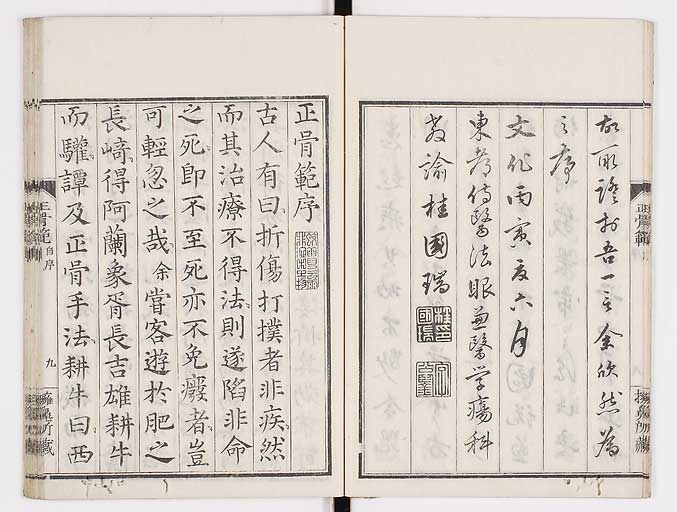 正骨範
取證於吾一言余欣然為
之序
文化丙寅夏六月
東都侍醫法眼兼醫学瘍科
教諭桂國瑞
正骨範序
古人有曰折傷打撲者非疾然
而其治療不得法則遂陷非命
之死即不至死亦不免癈者豈
可輕忽之哉余嘗客遊於肥之
長﨑得阿蘭象胥長吉雄耕牛
而驩譚及正骨手法耕牛曰西
正骨範 自序 九